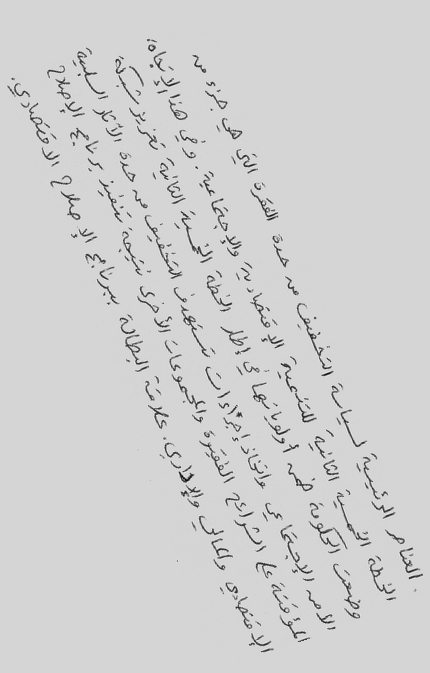 العناصر الرئيسية لسياسة التخفيف من حدة الفقرة التي هي جزء من
الخطة الخمسية الثانية للتنمية الإقتصادية والإجتماعية. وفي هذا الإتجاه،
وضعت الحكومة ضمن أولوياتها في إطار الخطة الخمسية الثانية تعزيز شبكة
الأمن الإجتماعي واتخاذ إجراءات تستهدف التخفيف من حدة الآثار السلبية
المؤقتة على الشرائح الفقيرة والمجموعات الأخرى نتيجة تنفيذ برنامج الإصلاح
الإقتصادي والمالي والإداري. علاقة البطالة ببرنامج الإصلاح الاقتصادي.